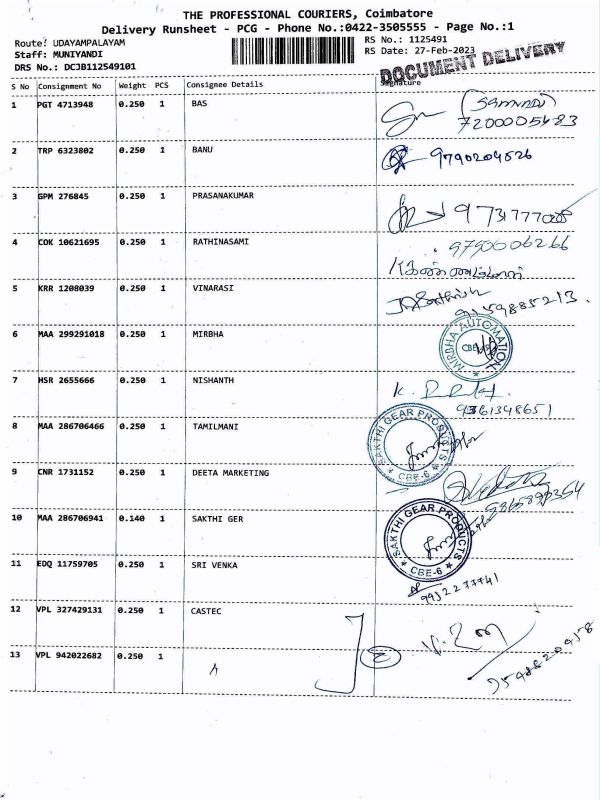 THE PROFESSIONAL COURIERS, Coimbatore
Delivery Runsheet - PCG - Phone No.:0422-3505555 - Page No.:1
Route: UDAYAMPALAYAM
Staff: MUNIYANDI
DRS No.: DCJB112549101
RS No.: 1125491
RS Date: 27-Feb-2023
DOCUMENT DELIVERY
S No Consignment No Weight PCS Consignee Details Signature
1 PGT 4713948 0.250 1 BAS
7200005683
2 TRP 6323802 0.250 1 BANU 9790204526
3 GPM 276845 0.250 1 PRASANAKUMAR
4 COK 10621695 0.250 1 RATHINASAMI 9790606266
5 KRR 1208039 0.250 1 VINARASI
9159885213.
6 MAA 299291018 0.250 1 MIRBHA
MIRBHA AUTOMATION
7 HSR 2655666 0.250 1 NISHANTH
9361348651
8 MAA 286706466 0.250 1 TAMILMANI
SAKTHI GEAR PRODUCTS
CBE-6
9 CNR 1731152 0.250 1 DEETA MARKETING
10 MAA 286706941 0.140 1 SAKTHI GER
SAKTHI GEAR PRODUCTS
CBE-6
11 EDQ 11759705 0.250 1 SRI VENKA
9952277741
12 VPL 327429131 0.250 1 CASTEC
13 VPL 942022682 0.250 1
A
2